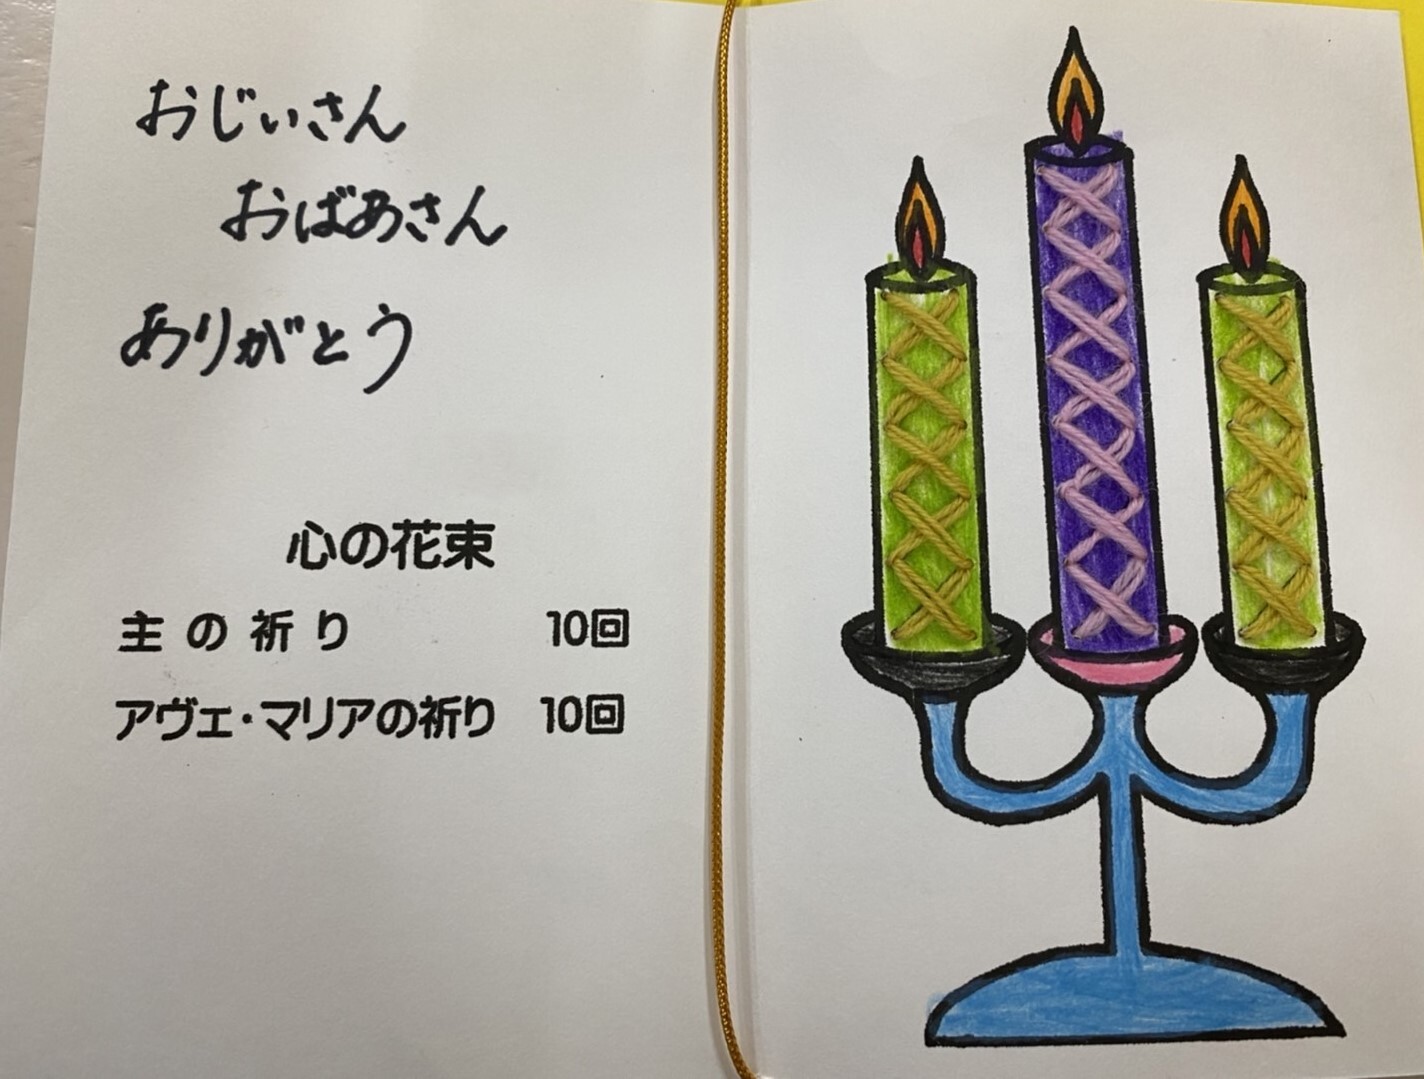 おじぃさん
おばあさん
ありがとう
心の花束
主の祈り 10回
アヴェ・マリアの祈り 10回